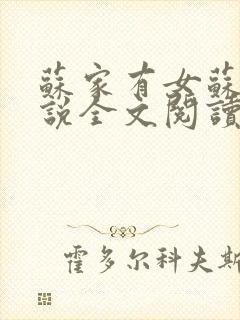 蘇家有女蘇
說全文閱讀
霍多尔科夫斯